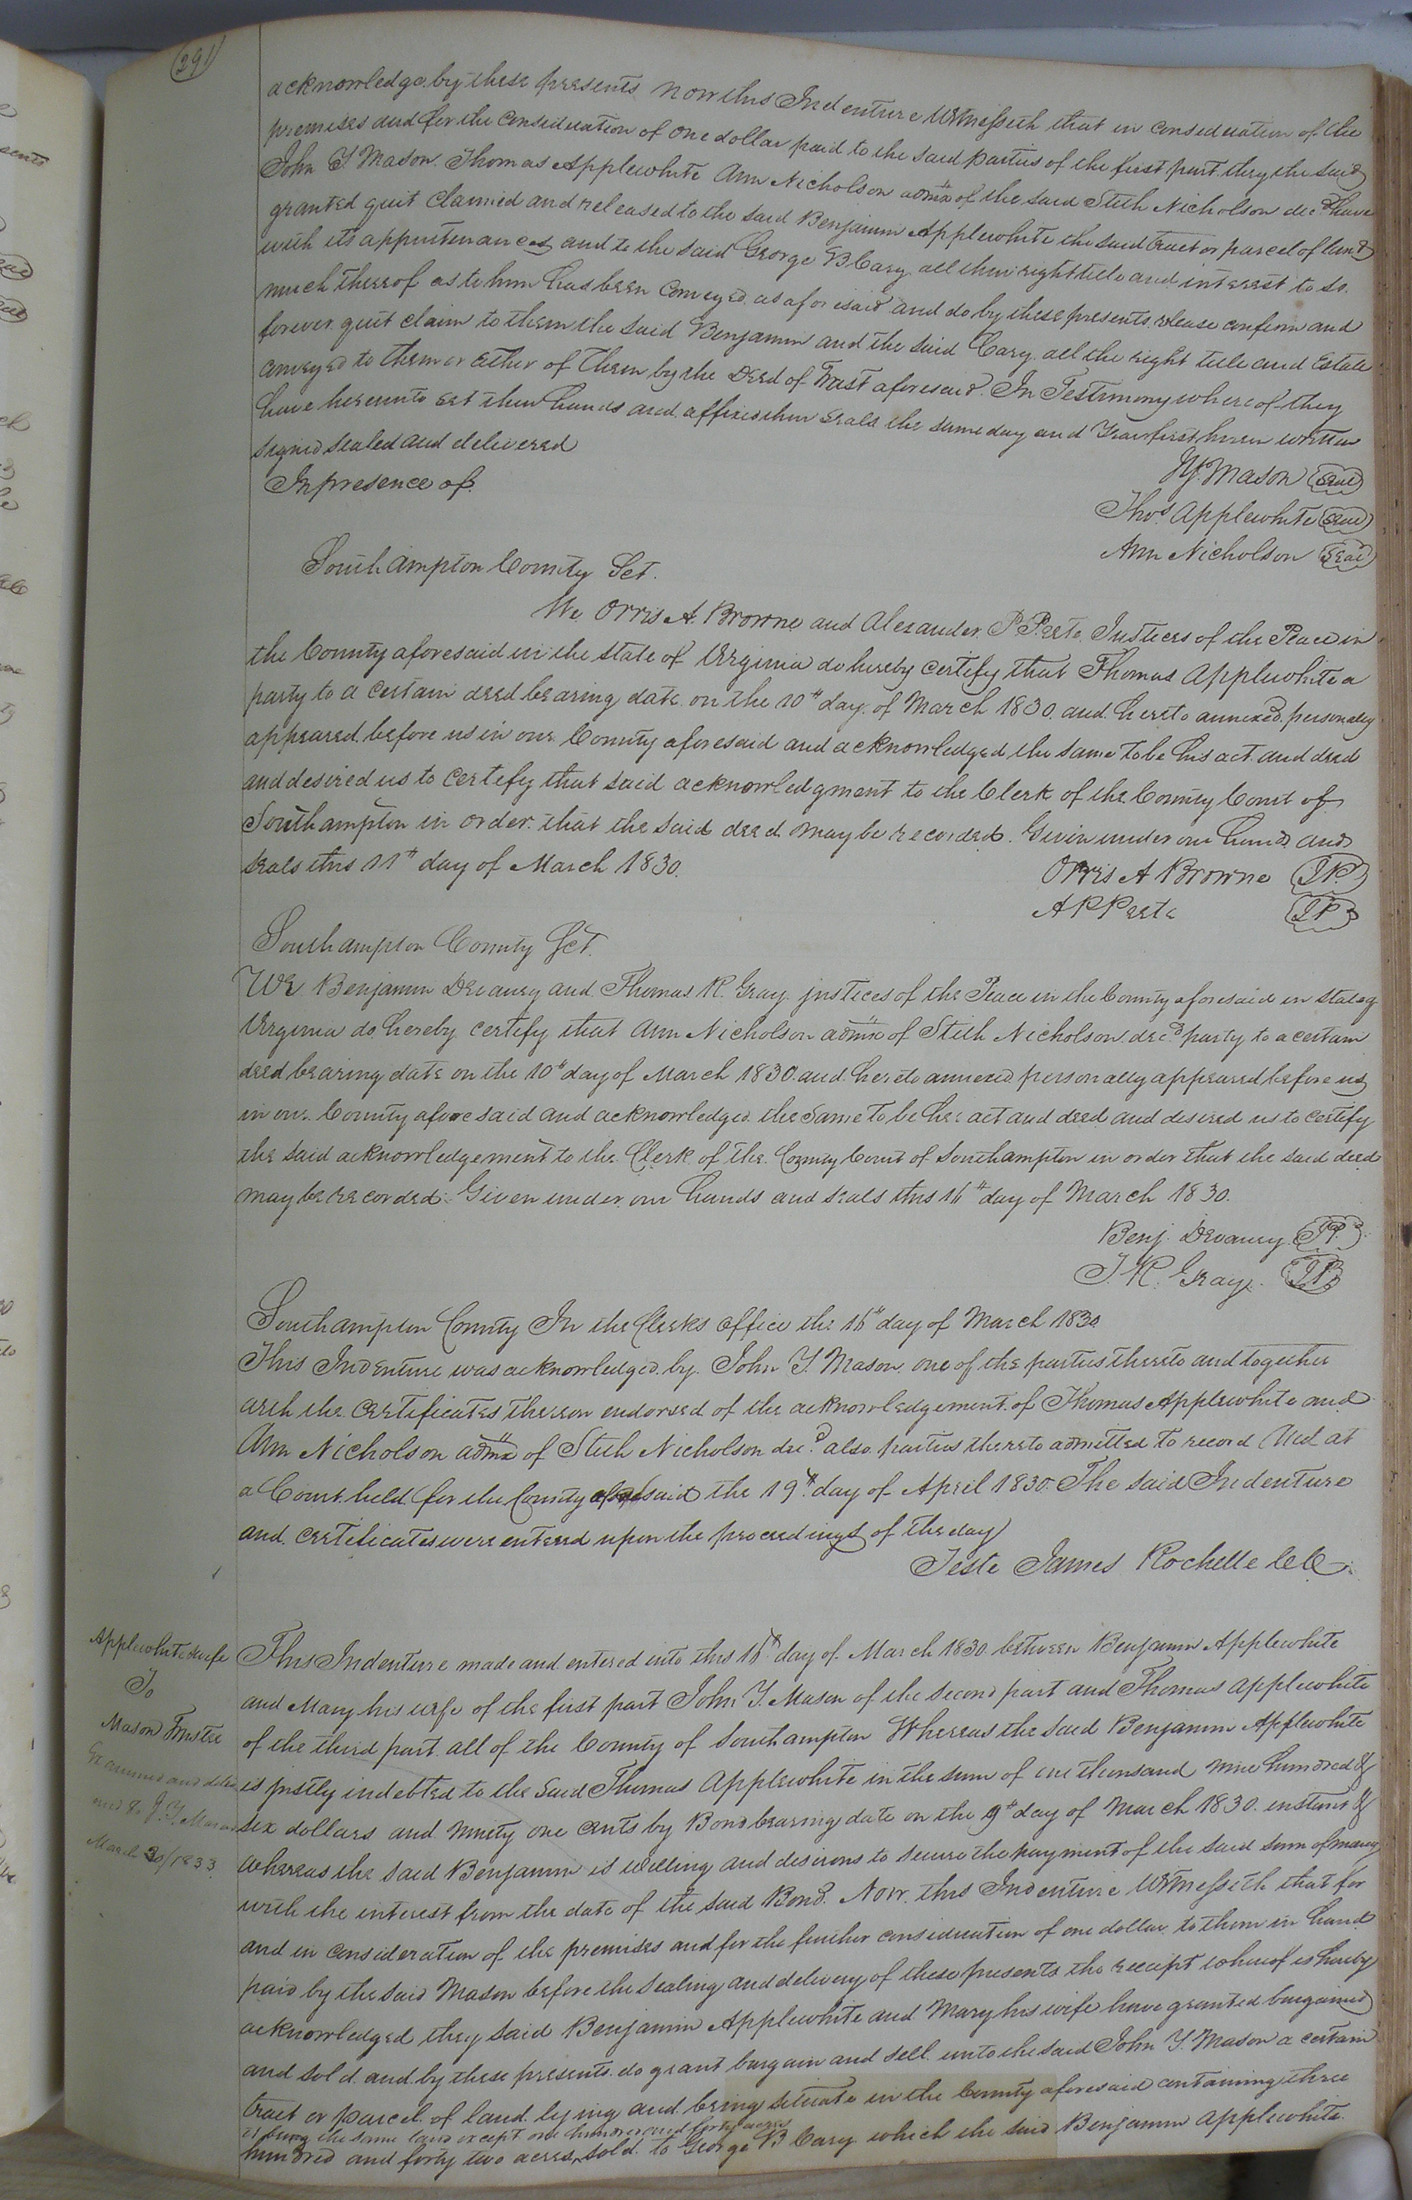 291
acknowledge by these presents now this Indenture Witnesseth that in consideration of the
premises and for the consideration of one dollar paid to the said parties of the first part they the said
John Y Mason Thomas Applewhite Ann Nicholson admx of the said Stith Nicholson decd have
granted quit claimed and released to the said Benjamin Applewhite the said tract or parcel of land
with its appurtenances and to the said George B Cary all their right title and interest to so
much thereof as to him has been conveyed as aforesaid and do by these presents release confirm and
forever quit claim to them the said Benjamin and the said Cary all the right title and Estate
conveyed to them or either of them by the Deed of Trust aforesaid. In Testimony whereof they
have hereunto set their hands and affixed their seals the same day and Year first herein written
signed sealed and delivered
In presence of
J Y. Mason Seal
Thos. Applewhite Seal
Ann Nicholson Seal
Southampton County Sct.
We Orris A. Browne and Alexander P Peete Justices of the Peace in
the County aforesaid in the state of Virginia do hereby certify that Thomas Applewhite a
party to a certain deed bearing date on the 10th day of March 1830 and hereto annexed personally
appeared before us in our County aforesaid and acknowledged the same to be his act and deed
and desired us to certify that said acknowledgment to the Clerk of the County Court of
Southampton in order that the said deed may be recorded. Given under our hands and
seals this 11th day of March 1830.
Orris A Browne J.P.
A P Peete J P
Southampton County Sct.
We Benjamin Devaney and Thomas R. Gray justices of the Peace in the County aforesaid in State of
Virginia do hereby certify that Ann Nicholson admx of Stith Nicholson decd party to a certain
deed bearing date on the 10th day of March 1830 and hereto annexed personally appeared before us
in our County aforesaid and acknowledged the same to be her act and deed and desired us to certify
the said acknowledgement to the Clerk of the County Court of Southampton in order that the said deed
may be recorded. Given under our hands and seals this 16th day of March 1830.
Benj. Devaney J.P.
T. R. Gray. J P
Southampton County In the Clerks office the 16th day of March 1830
This Indenture was acknowledged by John Y. Mason one of the parties thereto and together
with the certificates thereon endorsed of the acknowledgement of Thomas Applewhite and
Ann Nicholson admx of Stith Nicholson decd also parties thereto admitted to record And at
a Court held for the County aforesaid the 19th day of April 1830 The said Indenture
and certificates were entered upon the proceedings of the day
Teste James Rochelle CC
Applewhite & wife
To
Mason Trustee
Examined and deliv
ered to J. Y. Mason
March 30/1833
This Indenture made and entered into this 16th day of March 1830 between Benjamin Applewhite
and Mary his wife of the first part John Y. Mason of the second part and Thomas Applewhite
of the third part all of the County of Southampton Whereas the said Benjamin Applewhite
is justly indebted to the said Thomas Applewhite in the sum of one thousand nine hundred &
six dollars and Ninety one cents by Bond bearing date on the 9th day of March 1830. instant &
whereas the said Benjamin is willing and desirous to secure the payment of the said sum of money
with the interest from the date of the said Bond. Now this Indenture Witnesseth that for
and in consideration of the premises and for the further consideration of one dollar to them in hand
paid by the said Mason before the sealing and delivery of these presents the receipt whereof is hereby
acknowledged they said Benjamin Applewhite and Mary his wife have granted bargained
and sold and by these presents do grant bargain and sell unto the said John Y. Mason a certain
tract or parcel of land lying and being situate in the County aforesaid containing three
it being the same land except one hundred and forty acres
hundred and forty two acres, sold to George B Cary which the said Benjamin Applewhite